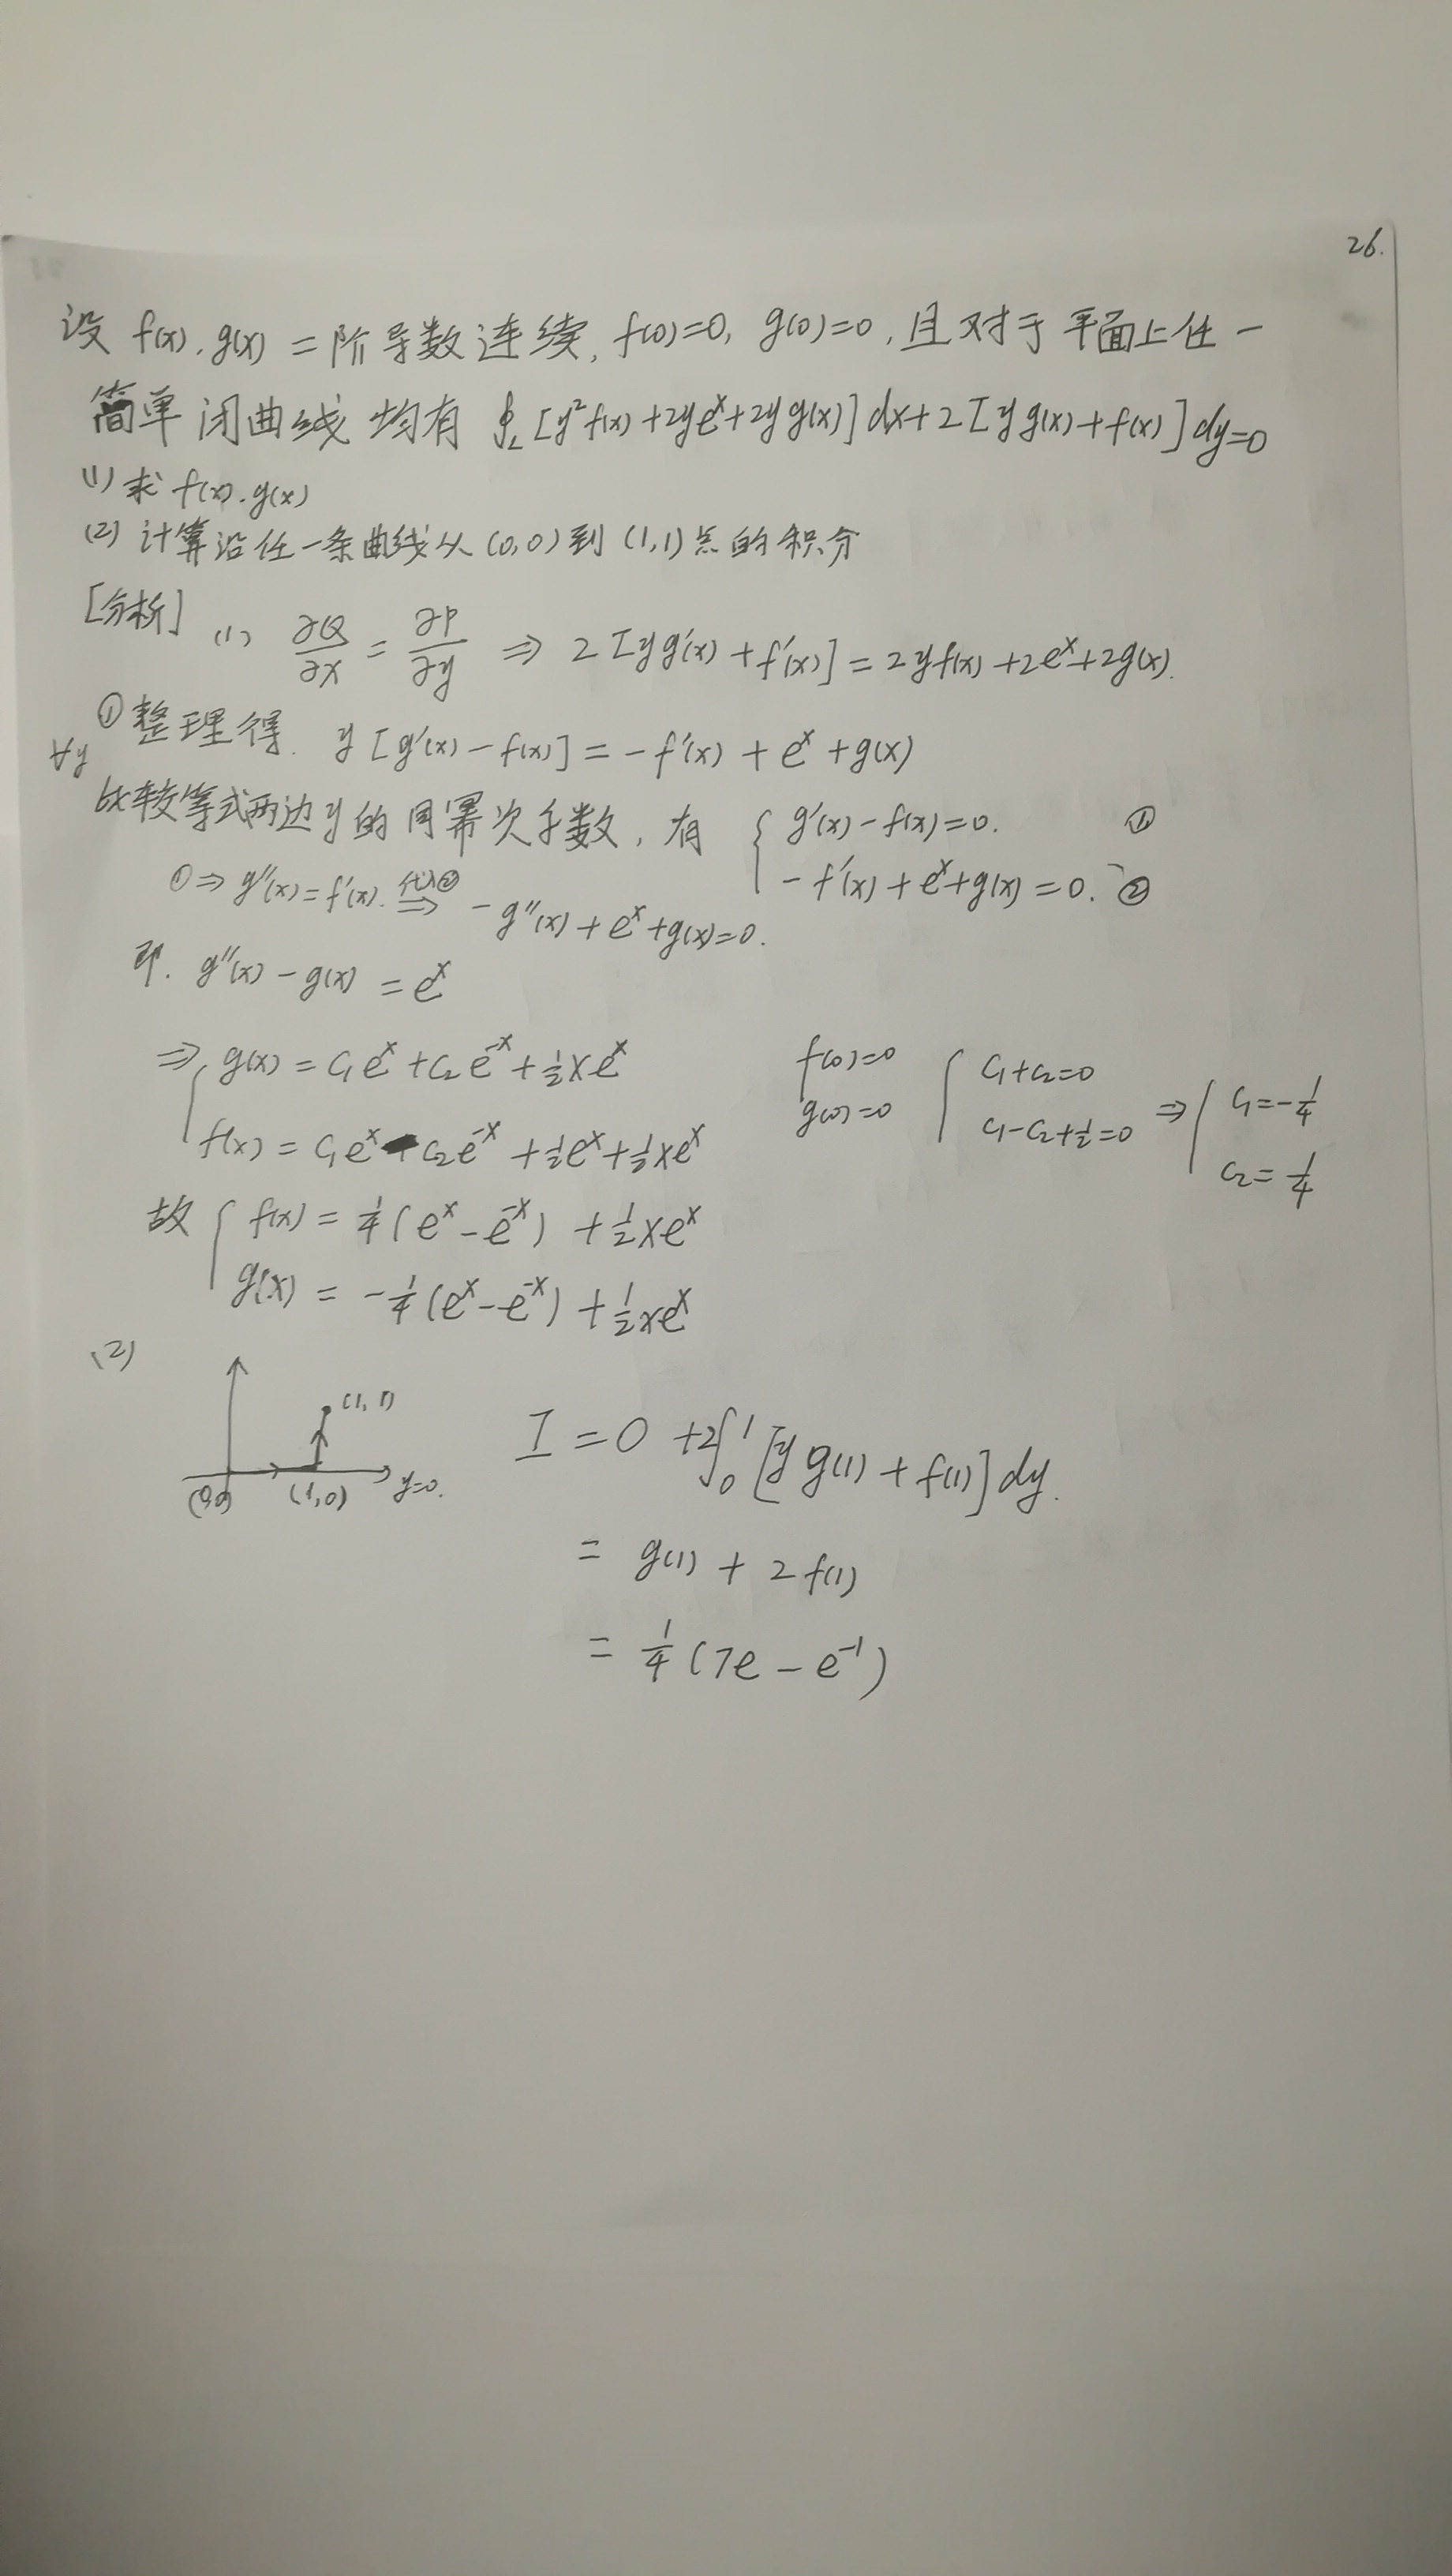 26.
设 f(x), g(x) 二阶导数连续, f(0)=0, g(0)=0, 且对于平面上任一
简单闭曲线均有 ∮_L [y²f(x)+2ye^x+2yg(x)]dx+2[yg(x)+f(x)]dy=0
(1) 求 f(x), g(x)
(2) 计算沿任一条曲线从(0,0)到(1,1)点的积分
[分析] (1) ∂Q/∂x = ∂P/∂y ⇒ 2[yg'(x)+f'(x)]=2yf(x)+2e^x+2g(x).
① 整理得. y[g'(x)-f(x)]=-f'(x)+e^x+g(x)
∀y
比较等式两边y的同幂次系数, 有 { g'(x)-f(x)=0. ①
-f'(x)+e^x+g(x)=0. ②
①⇒ g''(x)=f'(x). 代入②⇒ -g''(x)+e^x+g(x)=0.
即. g''(x)-g(x)=e^x
⇒ { g(x)=C₁e^x+C₂e^-x+½xe^x
f(x)=C₁e^x-C₂e^-x+½e^x+½xe^x
f(0)=0 { C₁+C₂=0 ⇒ { C₁=-1/4
g(0)=0 C₁-C₂+½=0 C₂=1/4
故 { f(x)=1/4(e^x-e^-x)+½xe^x
g(x)=-1/4(e^x-e^-x)+½xe^x
(2)
(1,1)
(0,0) (1,0) y=0.
I=0+2∫₀¹[yg(1)+f(1)]dy.
= g(1)+2f(1)
= 1/4(7e-e^-1)